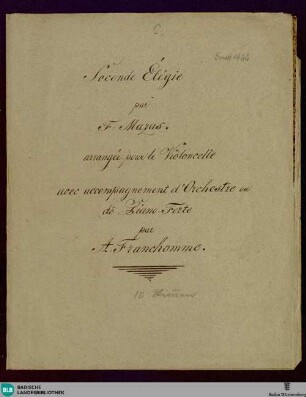 Seconde Élégie
par
F. Mazas.
arrangée pour le Violoncelle
avec accompagnement d'Orchestre ou
de Piano-Forte
par
A. Franchomme.
10
BLB
BADISCHE
LANDESBIBLIOTHEK
Baden-Württemberg